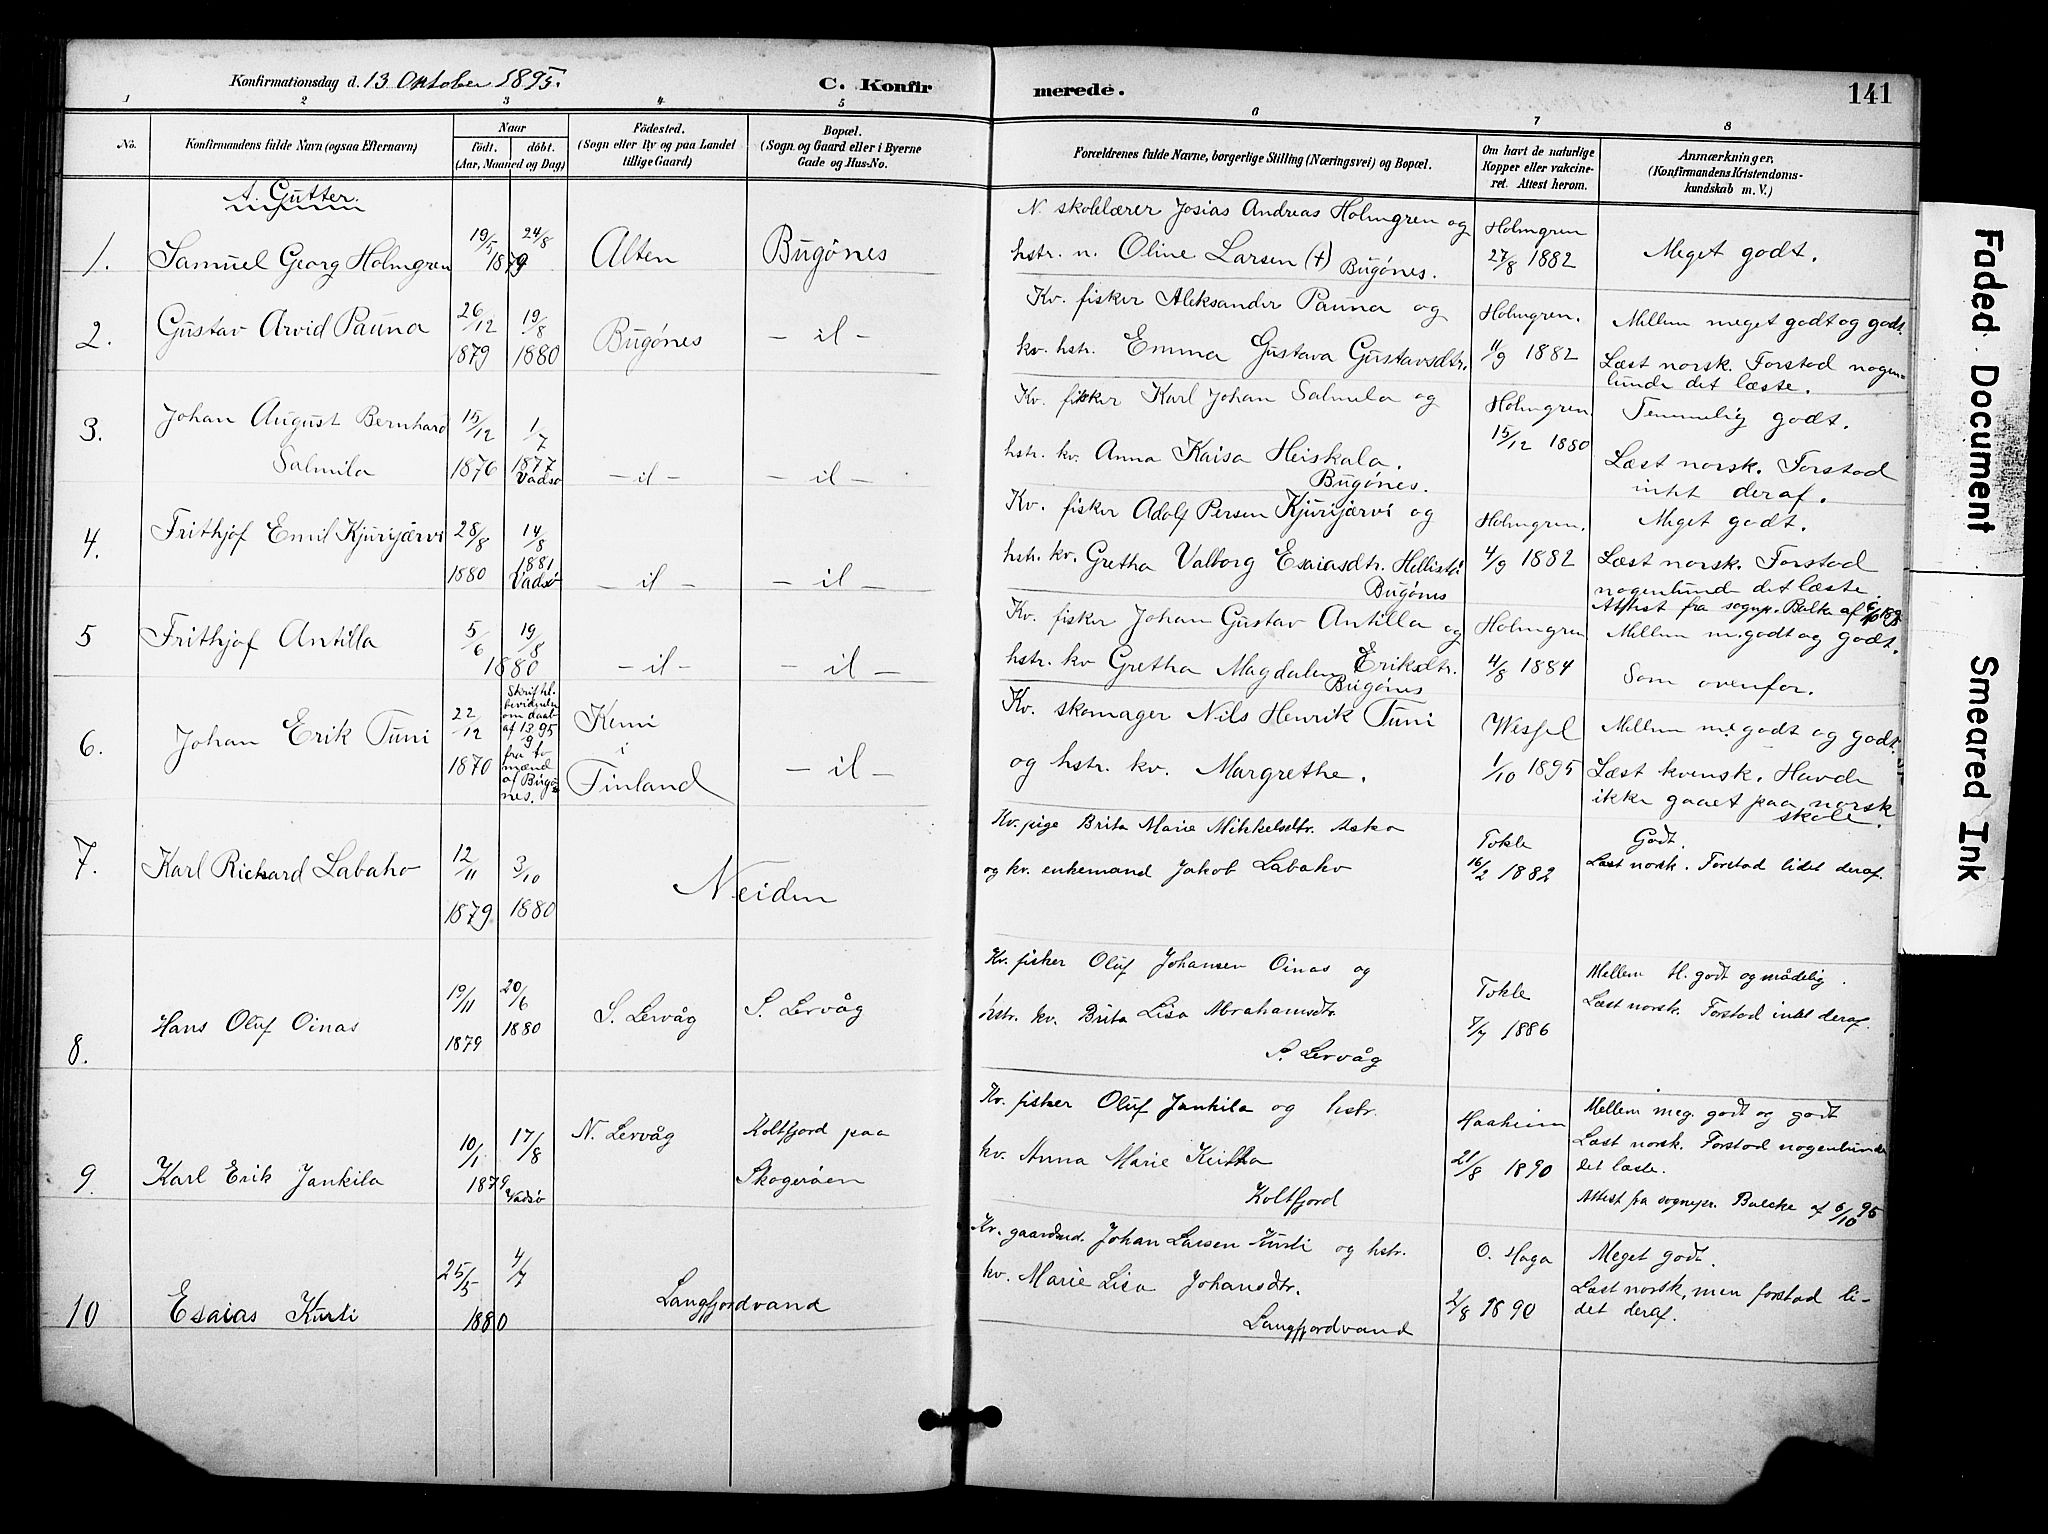 Konfirmationsdag d. 13 Oktober 1895.
C. Konfirmerede.
141
1 2 3 4 5 6 7 8
No.
Konfirmandens fulde Navn (ogsaa Efternavn)
Naar
födt. döbt.
(Aar, Maaned og Dag)
Födested.
(Sogn eller By og paa Landet
tillige Gaard)
Bopæl.
(Sogn og Gaard eller i Byerne
Gade og Hus-No.
Forældrenes fulde Navne, borgerlige Stilling (Næringsvei) og Bopæl.
Om havt de naturlige
Kopper eller vakcine-
ret. Attest herom.
Anmærkninger,
(Konfirmandens Kristendoms-
kundskab m. V.)
A. Gutter.
1. Samuel Georg Holmgren
19/5 24/8
1879
Alten
Bugönes
N. skolelærer Josias Andreas Holmgren og
hstr. n. Oline Larsen (+) Bugönes.
Holmgren
27/8 1882
Meget godt.
2. Gustav Arvid Pauna
26/12 19/8
1879 1880
Bugönes
- il -
Kv. fisker Aleksander Pauna og
kv. hstr. Emma Gustava Gustavsdtr.
Holmgren.
11/9 1882
Mellem meget godt og godt.
Læst norsk. Forstod nogen-
lunde det læste.
3. Johan August Bernhard
Salmila
15/12 1/7
1876 1877
Vadsö
- il -
- il -
Kv. fisker Karl Johan Salmila og
hstr. kv. Anna Kaisa Heiskala.
Bugönes.
Holmgren
15/12 1880
Temmelig godt.
Læst norsk. Forstod
intet deraf.
4. Frithjof Emil Kjurijärvi
28/8 14/8
1880 1881
Vadsö
- il -
- il -
Kv. fisker Adolf Persen Kjurijärvi og
hstr. kv. Gretha Valborg Esaiasdtr.
Bugönes
Holmgren.
4/9 1882
Meget godt.
Læst norsk. Forstod
nogenlunde det læste.
Attest fra sognepr. Balke af 6/10
5 Frithjof Antilla
5/6 19/8
1880
- il -
- il -
Kv. fisker Johan Gustav Antilla og
hstr. kv Gretha Magdalena Eriksdtr.
Bugönes
Holmgren
4/8 1884
Mellem m. godt og godt.
Som ovenfor.
6. Johan Erik Tuni
22/12
1870
Skriftl.
bevidnelse
om daab
af 13/9 95
fra to
mænd
af Bugö-
nes.
Kemi
i
Finland
- il -
Kv. skomager Nils Henrik Tuni
og hstr. kv. Margrethe.
Wessel
1/10 1895
Mellem m. godt og godt.
Læst kvensk. Havde
ikke gaaet paa norsk
skole.
7. Karl Rickard Labaho
12/11 3/10
1879 1880
Neiden
Kv. pige Brita Marie Mikkelsdtr. Aska
og kv. enkemand Jakob Labaho
Tokle
16/2 1882
Godt.
Læst norsk. Forstod lidet deraf.
8. Hans Oluf Oinas
19/11 20/6
1879 1880
S. Lervåg
S. Lervåg
Kv. fisker Oluf Johansen Oinas og
hstr. kv. Brita Lisa Abrahamsdtr.
S. Lervåg
Tokle
7/7 1886
Mellem t. godt og mådelig.
Læst norsk. Forstod intet deraf.
9. Karl Erik Jankila
10/1 17/8
1879 Vadsö
N. Lervåg
Koltfjord paa
Skogeröen
Kv. fisker Oluf Jankila og hstr.
kv. Anna Marie Keitha
Koltfjord
Haaheim
21/8 1890
Mellem meg. godt og godt
Læst norsk. Forstod nogenlunde
det læste.
Attest fra sognepr. Balcke af 6/10 95
10 Esaias Kursi
25/5 4/7
1880
Langfjordvand
Kv. gaardmd. Johan Larsen Kursi og hstr.
kv. Marie Lisa Johansdtr.
Langfjordvand
O. Haga
2/8 1890
Meget godt.
Læst norsk, men forstod li-
det deraf.
Faded Document
Smeared Ink